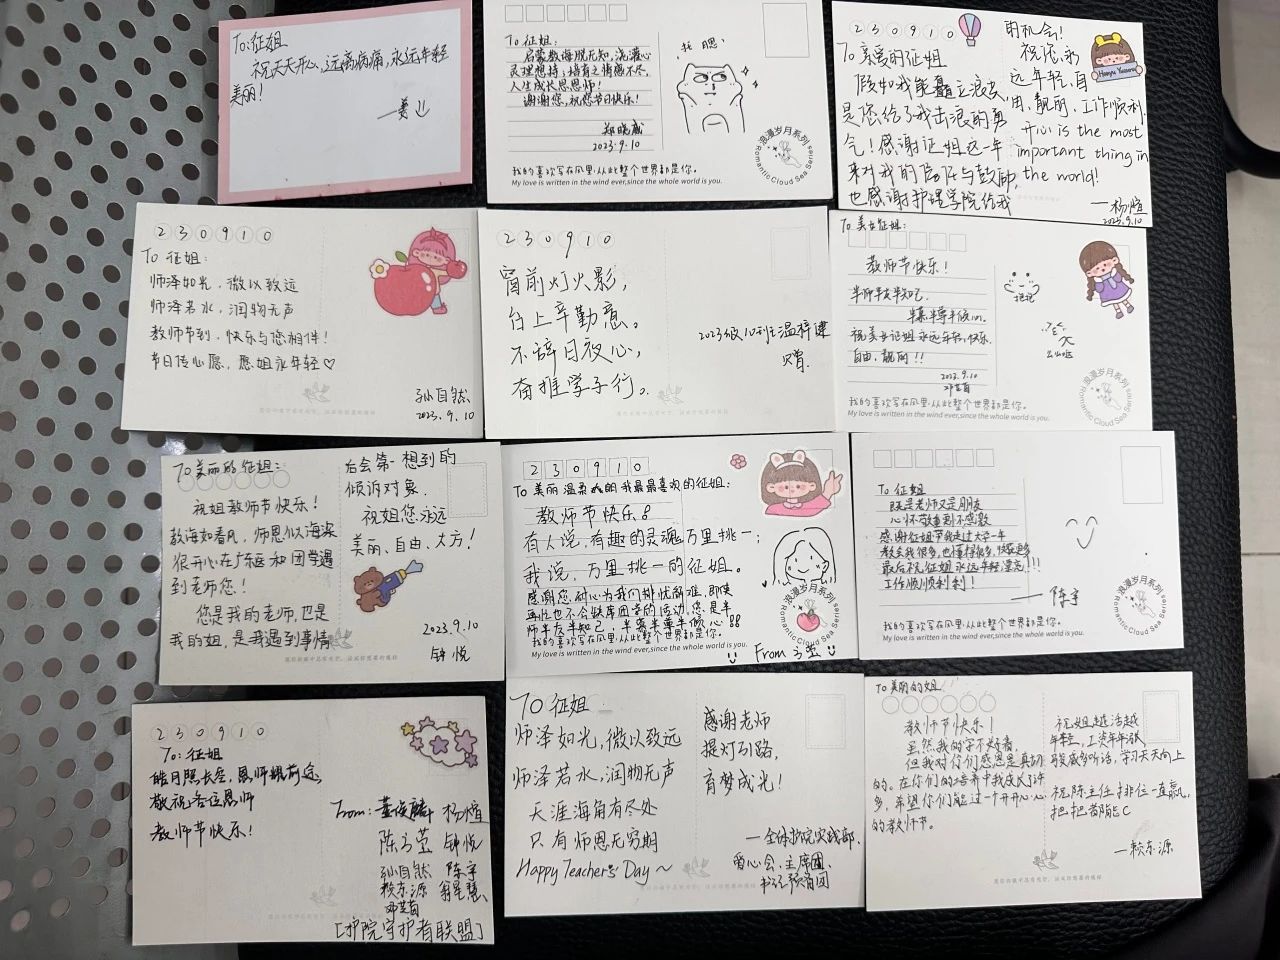 To:征姐
祝天天开心,远离病痛,永远年轻
美丽!
To 征姐:
启蒙教海脱无知,浇灌心
灵理想持;培育之情感不尽,
人生成长思恩师!
谢谢您,祝您节日快乐!
郑晓威
2023.9.10
托 腮
浪漫岁月系列
Romantic Cloud Sea Series
我的喜欢写在风里·从此整个世界都是你。
My love is written in the wind ever,since the whole world is you.
2 3 0 9 1 0
To 亲爱的征姐
假如我能矗立浪尖,
是您给了我击浪的勇
气!感谢征姐这一年
来对我的陪伴与鼓励,
也感谢护理学院给我
的机会!
祝您永
远年轻,自
由,靓丽,工作顺利.
开心is the most
important thing in
the world!
一杨煊
2023.9.10
2 3 0 9 1 0
To 征姐:
师泽如光,微以致远
师泽若水,润物无声
教师节到,快乐与您相伴!
节日传心愿,愿姐永年轻♡
孙自然
2023.9.10
2 3 0 9 1 0
窗前灯火影,
台上辛勤意。
不辞日夜心,
奋推学子行。
2023级10班温梓健
赠.
To 美女征姐:
教师节快乐!
半师半友半知己,
半慕半尊半倾心.
祝美女征姐永远年轻,快乐,
自由,靓丽!!
2023.9.10
邓芸茵
浪漫岁月系列
Romantic Cloud Sea Series
我的喜欢写在风里·从此整个世界都是你。
My love is written in the wind ever,since the whole world is you.
To 美丽的征姐:
祝姐教师节快乐!
教海如春风,师恩似海深
很开心在广东医和团学遇
到老师您!
您是我的老师,也是
我的姐,是我遇到事情
后会第一想到的
倾诉对象.
祝姐您永远
美丽、自由、大方!
2023.9.10
钟悦
2 3 0 9 1 0
To 美丽温柔的我最最喜欢的征姐:
教师节快乐
有人说,有趣的灵魂万里挑一;
我说,万里挑一的征姐。
感谢您耐心为我们排忧解难,即使
再忙也不会缺席团学的活动,您是半
师半友半知己,半慕半尊半倾心
我的喜欢写在风里·从此整个世界都是你。
My love is written in the wind ever,since the whole world is you.
浪漫岁月系列
From 方莹
To 征姐
既是老师又是朋友
心怀敬重到不感激
感谢征姐带我走过大学一年
教会我很多,也懂得很多,收获更多
最后祝征姐永远年轻漂亮!!!
工作顺顺利利!
——陈宇
浪漫岁月系列
Romantic Cloud Sea Series
我的喜欢写在风里·从此整个世界都是你。
My love is written in the wind ever,since the whole world is you.
2 3 0 9 1 0
To:征姐
皓月照长空,恩师耀前途,
敬祝各位恩师
教师节快乐!
From:董俊麟 杨煊
陈方莹 钟悦
孙自然 陈宇
赖东源 翁星慧
邓芸茵
[护院守护者联盟]
TO 征姐
师泽如光,微以致远
师泽若水,润物无声
天涯海角有尽处
只有师恩无穷期
Happy Teachers' Day~
感谢老师
提灯引路,
育梦成光!
一全体护院实践部、
爱心会,主席团、
书记预备团
To 美丽的姐
教师节快乐!
虽然我的字不好看,
但我对你们感恩是真切
的。在你们的培养中我成长了许
多,希望你们能过一个开开心心
的教师节。
祝姐越活越
年轻,工资年年涨
骏威多听话,学习天天向上
祝陈主任排位一直赢,
把把都能C
一赖东源